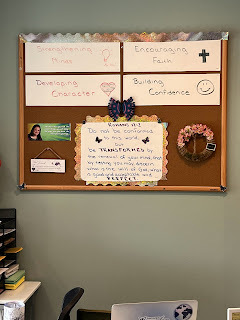 Strengthening
Minds
Encouraging
Faith
Developing
Character
Building
Confidence
ROMANS 12:2
Do not be conformed
to this world,
but
be TRANSFORMED by
the renewal of your mind, that
by testing you may discern
what is the will of God, what
is good and acceptable and
PERFECT.